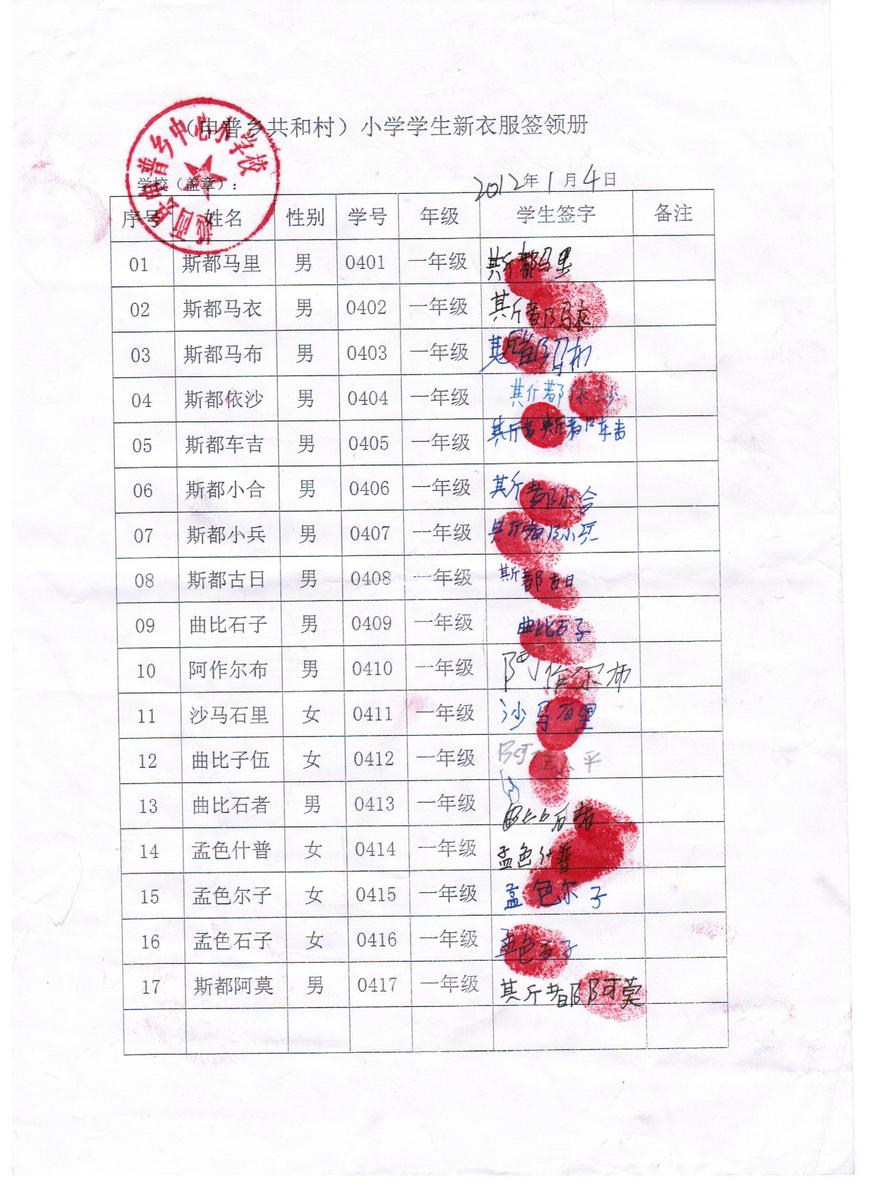 （申普乡共和村）小学学生新衣服签领册
申普乡中心小学校
学校（盖章）：
2012年1月4日
序号 姓名 性别 学号 年级 学生签字 备注
01 斯都马里 男 0401 一年级 斯都马里
02 斯都马衣 男 0402 一年级 斯都马衣
03 斯都马布 男 0403 一年级 斯都马布
04 斯都依沙 男 0404 一年级 斯都依沙
05 斯都车吉 男 0405 一年级 斯都车吉
06 斯都小合 男 0406 一年级 斯都小合
07 斯都小兵 男 0407 一年级 斯都小兵
08 斯都古日 男 0408 一年级 斯都古日
09 曲比石子 男 0409 一年级 曲比石子
10 阿作尔布 男 0410 一年级 阿作尔布
11 沙马石里 女 0411 一年级 沙马石里
12 曲比子伍 女 0412 一年级
13 曲比石者 男 0413 一年级 曲比石者
14 孟色什普 女 0414 一年级 孟色什普
15 孟色尔子 女 0415 一年级 孟色尔子
16 孟色石子 女 0416 一年级 孟色石子
17 斯都阿莫 男 0417 一年级 斯都阿莫